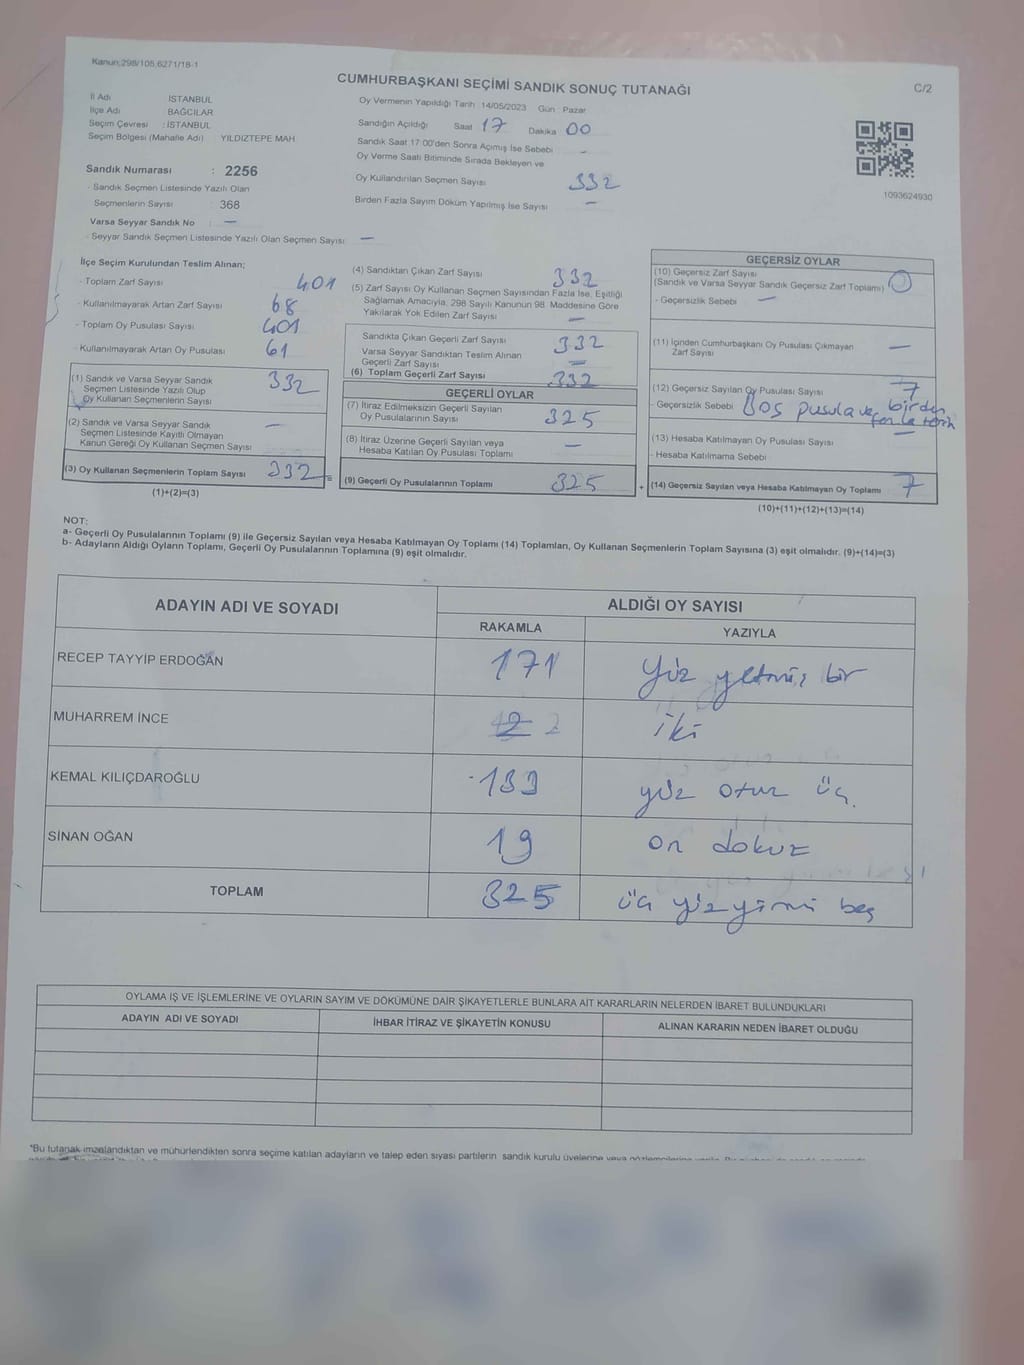 Kanun;298/105,6271/18-1
CUMHURBAŞKANI SEÇİMİ SANDIK SONUÇ TUTANAĞI
C/2
İl Adı İSTANBUL
İlçe Adı BAĞCILAR
Seçim Çevresi : İSTANBUL
Seçim Bölgesi (Mahalle Adı) : YILDIZTEPE MAH
Sandık Numarası : 2256
- Sandık Seçmen Listesinde Yazılı Olan
Seçmenlerin Sayısı : 368
Varsa Seyyar Sandık No : —
- Seyyar Sandık Seçmen Listesinde Yazılı Olan Seçmen Sayısı: —
Oy Vermenin Yapıldığı Tarih : 14/05/2023 Gün : Pazar
Sandığın Açıldığı Saat 17 Dakika 00
Sandık Saat 17:00'den Sonra Açılmış İse Sebebi —
Oy Verme Saati Bitiminde Sırada Bekleyen ve
Oy Kullandırılan Seçmen Sayısı 332
Birden Fazla Sayım Döküm Yapılmış İse Sayısı —
1093624930
İlçe Seçim Kurulundan Teslim Alınan;
- Toplam Zarf Sayısı 401
- Kullanılmayarak Artan Zarf Sayısı 68
- Toplam Oy Pusulası Sayısı 401
- Kullanılmayarak Artan Oy Pusulası 61
(1) Sandık ve Varsa Seyyar Sandık
Seçmen Listesinde Yazılı Olup
Oy Kullanan Seçmenlerin Sayısı 332
(2) Sandık ve Varsa Seyyar Sandık
Seçmen Listesinde Kayıtlı Olmayan
Kanun Gereği Oy Kullanan Seçmen Sayısı —
(3) Oy Kullanan Seçmenlerin Toplam Sayısı 332 =
(1)+(2)=(3)
(4) Sandıktan Çıkan Zarf Sayısı 332
(5) Zarf Sayısı Oy Kullanan Seçmen Sayısından Fazla İse, Eşitliği
Sağlamak Amacıyla, 298 Sayılı Kanunun 98. Maddesine Göre
Yakılarak Yok Edilen Zarf Sayısı —
Sandıkta Çıkan Geçerli Zarf Sayısı 332
Varsa Seyyar Sandıktan Teslim Alınan
Geçerli Zarf Sayısı —
(6) Toplam Geçerli Zarf Sayısı 332
GEÇERLİ OYLAR
(7) İtiraz Edilmeksizin Geçerli Sayılan
Oy Pusulalarının Sayısı 325
(8) İtiraz Üzerine Geçerli Sayılan veya
Hesaba Katılan Oy Pusulası Toplamı —
(9) Geçerli Oy Pusulalarının Toplamı 325 +
GEÇERSİZ OYLAR
(10) Geçersiz Zarf Sayısı
(Sandık ve Varsa Seyyar Sandık Geçersiz Zarf Toplamı) 0
- Geçersizlik Sebebi —
(11) İçinden Cumhurbaşkanı Oy Pusulası Çıkmayan
Zarf Sayısı —
(12) Geçersiz Sayılan Oy Pusulası Sayısı 7
- Geçersizlik Sebebi Boş pusula ve birden
fazla tercih
(13) Hesaba Katılmayan Oy Pusulası Sayısı —
- Hesaba Katılmama Sebebi
(14) Geçersiz Sayılan veya Hesaba Katılmayan Oy Toplamı 7
(10)+(11)+(12)+(13)=(14)
NOT:
a- Geçerli Oy Pusulalarının Toplamı (9) ile Geçersiz Sayılan veya Hesaba Katılmayan Oy Toplamı (14) Toplamları, Oy Kullanan Seçmenlerin Toplam Sayısına (3) eşit olmalıdır. (9)+(14)=(3)
b- Adayların Aldığı Oyların Toplamı, Geçerli Oy Pusulalarının Toplamına (9) eşit olmalıdır.
ADAYIN ADI VE SOYADI ALDIĞI OY SAYISI
RAKAMLA YAZIYLA
RECEP TAYYİP ERDOĞAN 171 yüz yetmiş bir
MUHARREM İNCE 2 iki
KEMAL KILIÇDAROĞLU 133 yüz otuz üç.
SİNAN OĞAN 19 on dokuz
TOPLAM 325 üç yüz yirmi beş
OYLAMA İŞ VE İŞLEMLERİNE VE OYLARIN SAYIM VE DÖKÜMÜNE DAİR ŞİKAYETLERLE BUNLARA AİT KARARLARIN NELERDEN İBARET BULUNDUKLARI
ADAYIN ADI VE SOYADI İHBAR İTİRAZ VE ŞİKAYETİN KONUSU ALINAN KARARIN NEDEN İBARET OLDUĞU
*Bu tutanak imzalandıktan ve mühürlendikten sonra seçime katılan adayların ve talep eden siyasi partilerin sandık kurulu üyelerine veya